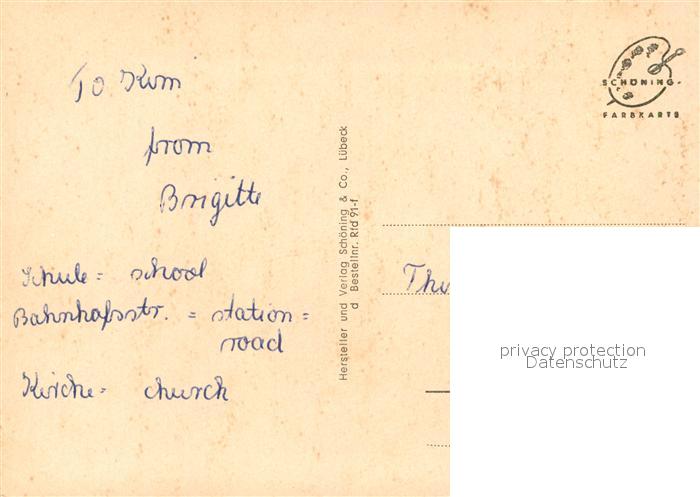 To Kim
from
Brigitte
Schule = school
Bahnhofsstr. = station =
road
Kirche = church
Hersteller und Verlag Schöning & Co., Lübeck
d Bestellnr. Rtd 91-f
SCHÖNING-
FARBKARTE
privacy protection
Datenschutz